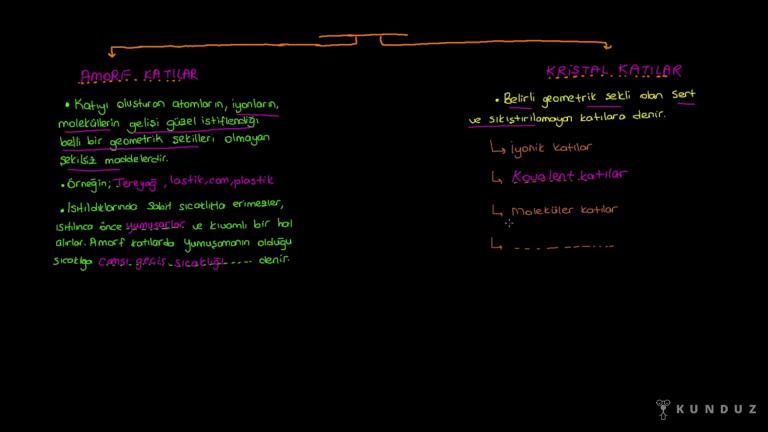 AMORF KATILAR
• Katıyı oluşturan atomların, iyonların,
moleküllerin gelişi güzel istiflendiği
belli bir geometrik şekilleri olmayan
şekilsiz maddelerdir.
• Örneğin; Tereyağ, lastik, cam, plastik
• Isıtıldıklarında sabit sıcaklıkta erimezler,
ısıtılınca önce yumuşarlar ve kıvamlı bir hal
alırlar. Amorf katılarda yumuşamanın olduğu
sıcaklığa camsı geçiş sıcaklığı denir.
KRİSTAL KATILAR
• Belirli geometrik şekli olan sert
ve sıkıştırılamayan katılara denir.
İyonik katılar
Kovalent katılar
Moleküler katılar
KUNDUZ